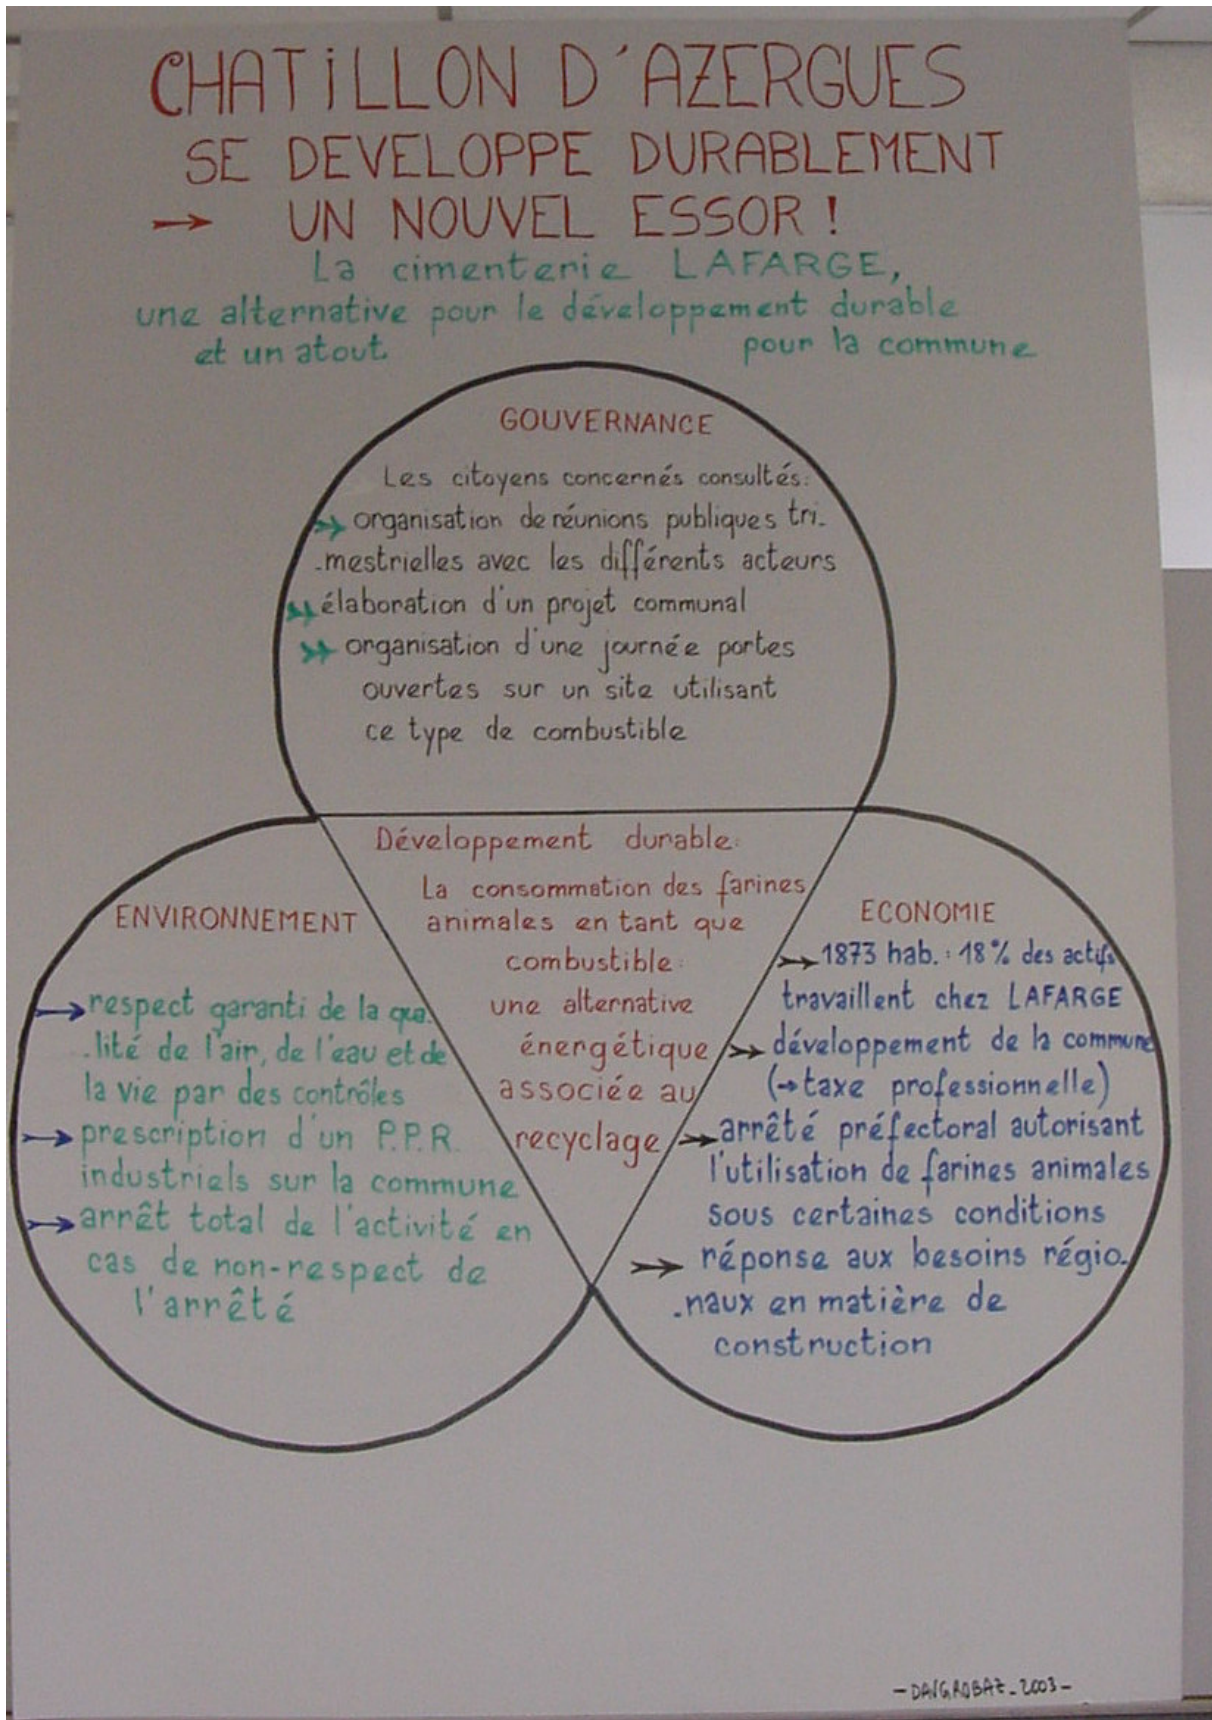 CHATiLLON D'AZERGUES
SE DEVELOPPE DURABLEMENT
→ UN NOUVEL ESSOR !
La cimenterie LAFARGE,
une alternative pour le développement durable
et un atout pour la commune
GOUVERNANCE
Les citoyens concernés consultés:
organisation de réunions publiques tri-
-mestrielles avec les différents acteurs
élaboration d'un projet communal
organisation d'une journée portes
ouvertes sur un site utilisant
ce type de combustible
Développement durable:
La consommation des farines
animales en tant que
combustible:
une alternative
énergétique
associée au
recyclage
ENVIRONNEMENT
→ respect garanti de la qua-
-lité de l'air, de l'eau et de
la vie par des contrôles
→ prescription d'un P.P.R.
industriels sur la commune
→ arrêt total de l'activité en
cas de non-respect de
l'arrêté
ECONOMIE
→ 1873 hab. : 18% des actifs
travaillent chez LAFARGE
→ développement de la commune
(→ taxe professionnelle)
→ arrêté préfectoral autorisant
l'utilisation de farines animales
sous certaines conditions
→ réponse aux besoins régio-
-naux en matière de
construction
- 2003 -